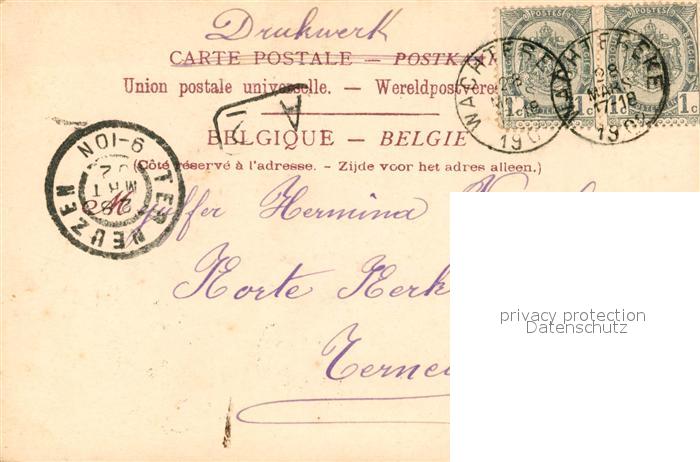 Drukwerk
CARTE POSTALE – POSTKA
Union postale universelle. – Wereldpostvere
BELGIQUE – BELGIE
(Côté réservé à l'adresse. – Zijde voor het adres alleen.)
WACHTEBE
28
190
WACHTEBEKE
28
MARS
17-18
190
1c 1c
A
TER NEUZEN
28 MRT 02
9-10N
Mejuffer Hermina
Korte Kerk
Terneu
privacy protection
Datenschutz